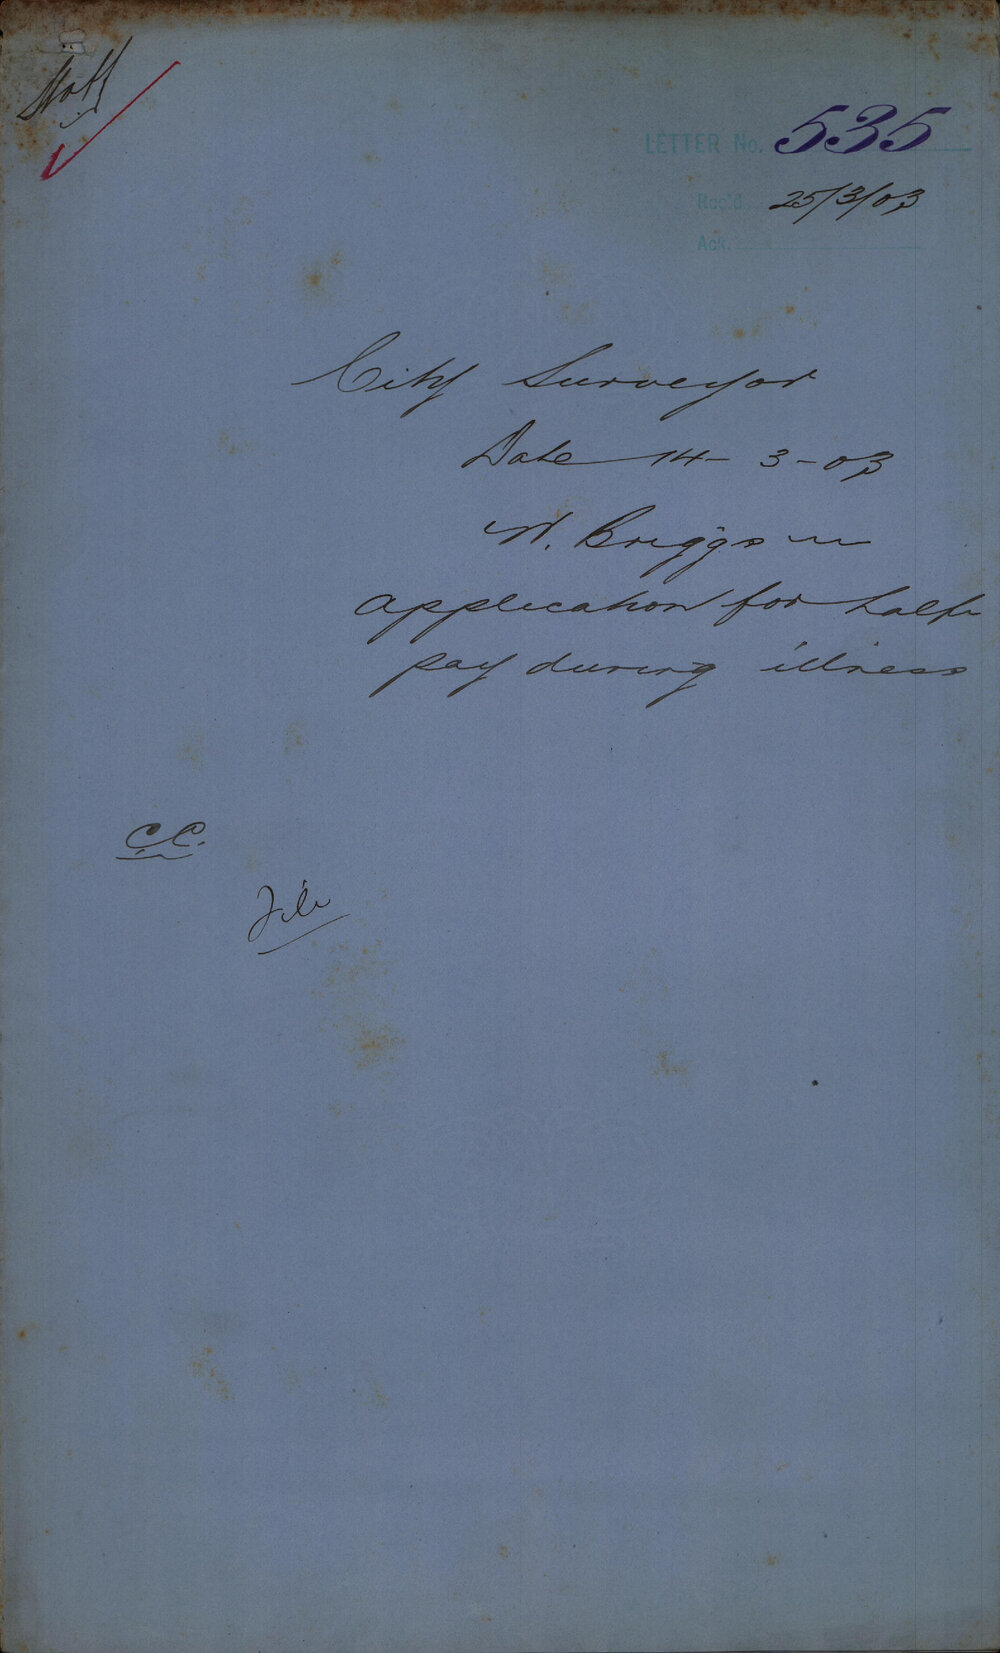 Staff
LETTER No. 535
Rec'd. 25/3/03
Ack.
City Surveyor
Date 14-3-03
W. Briggs
application for half
pay during illness
C.C.
File